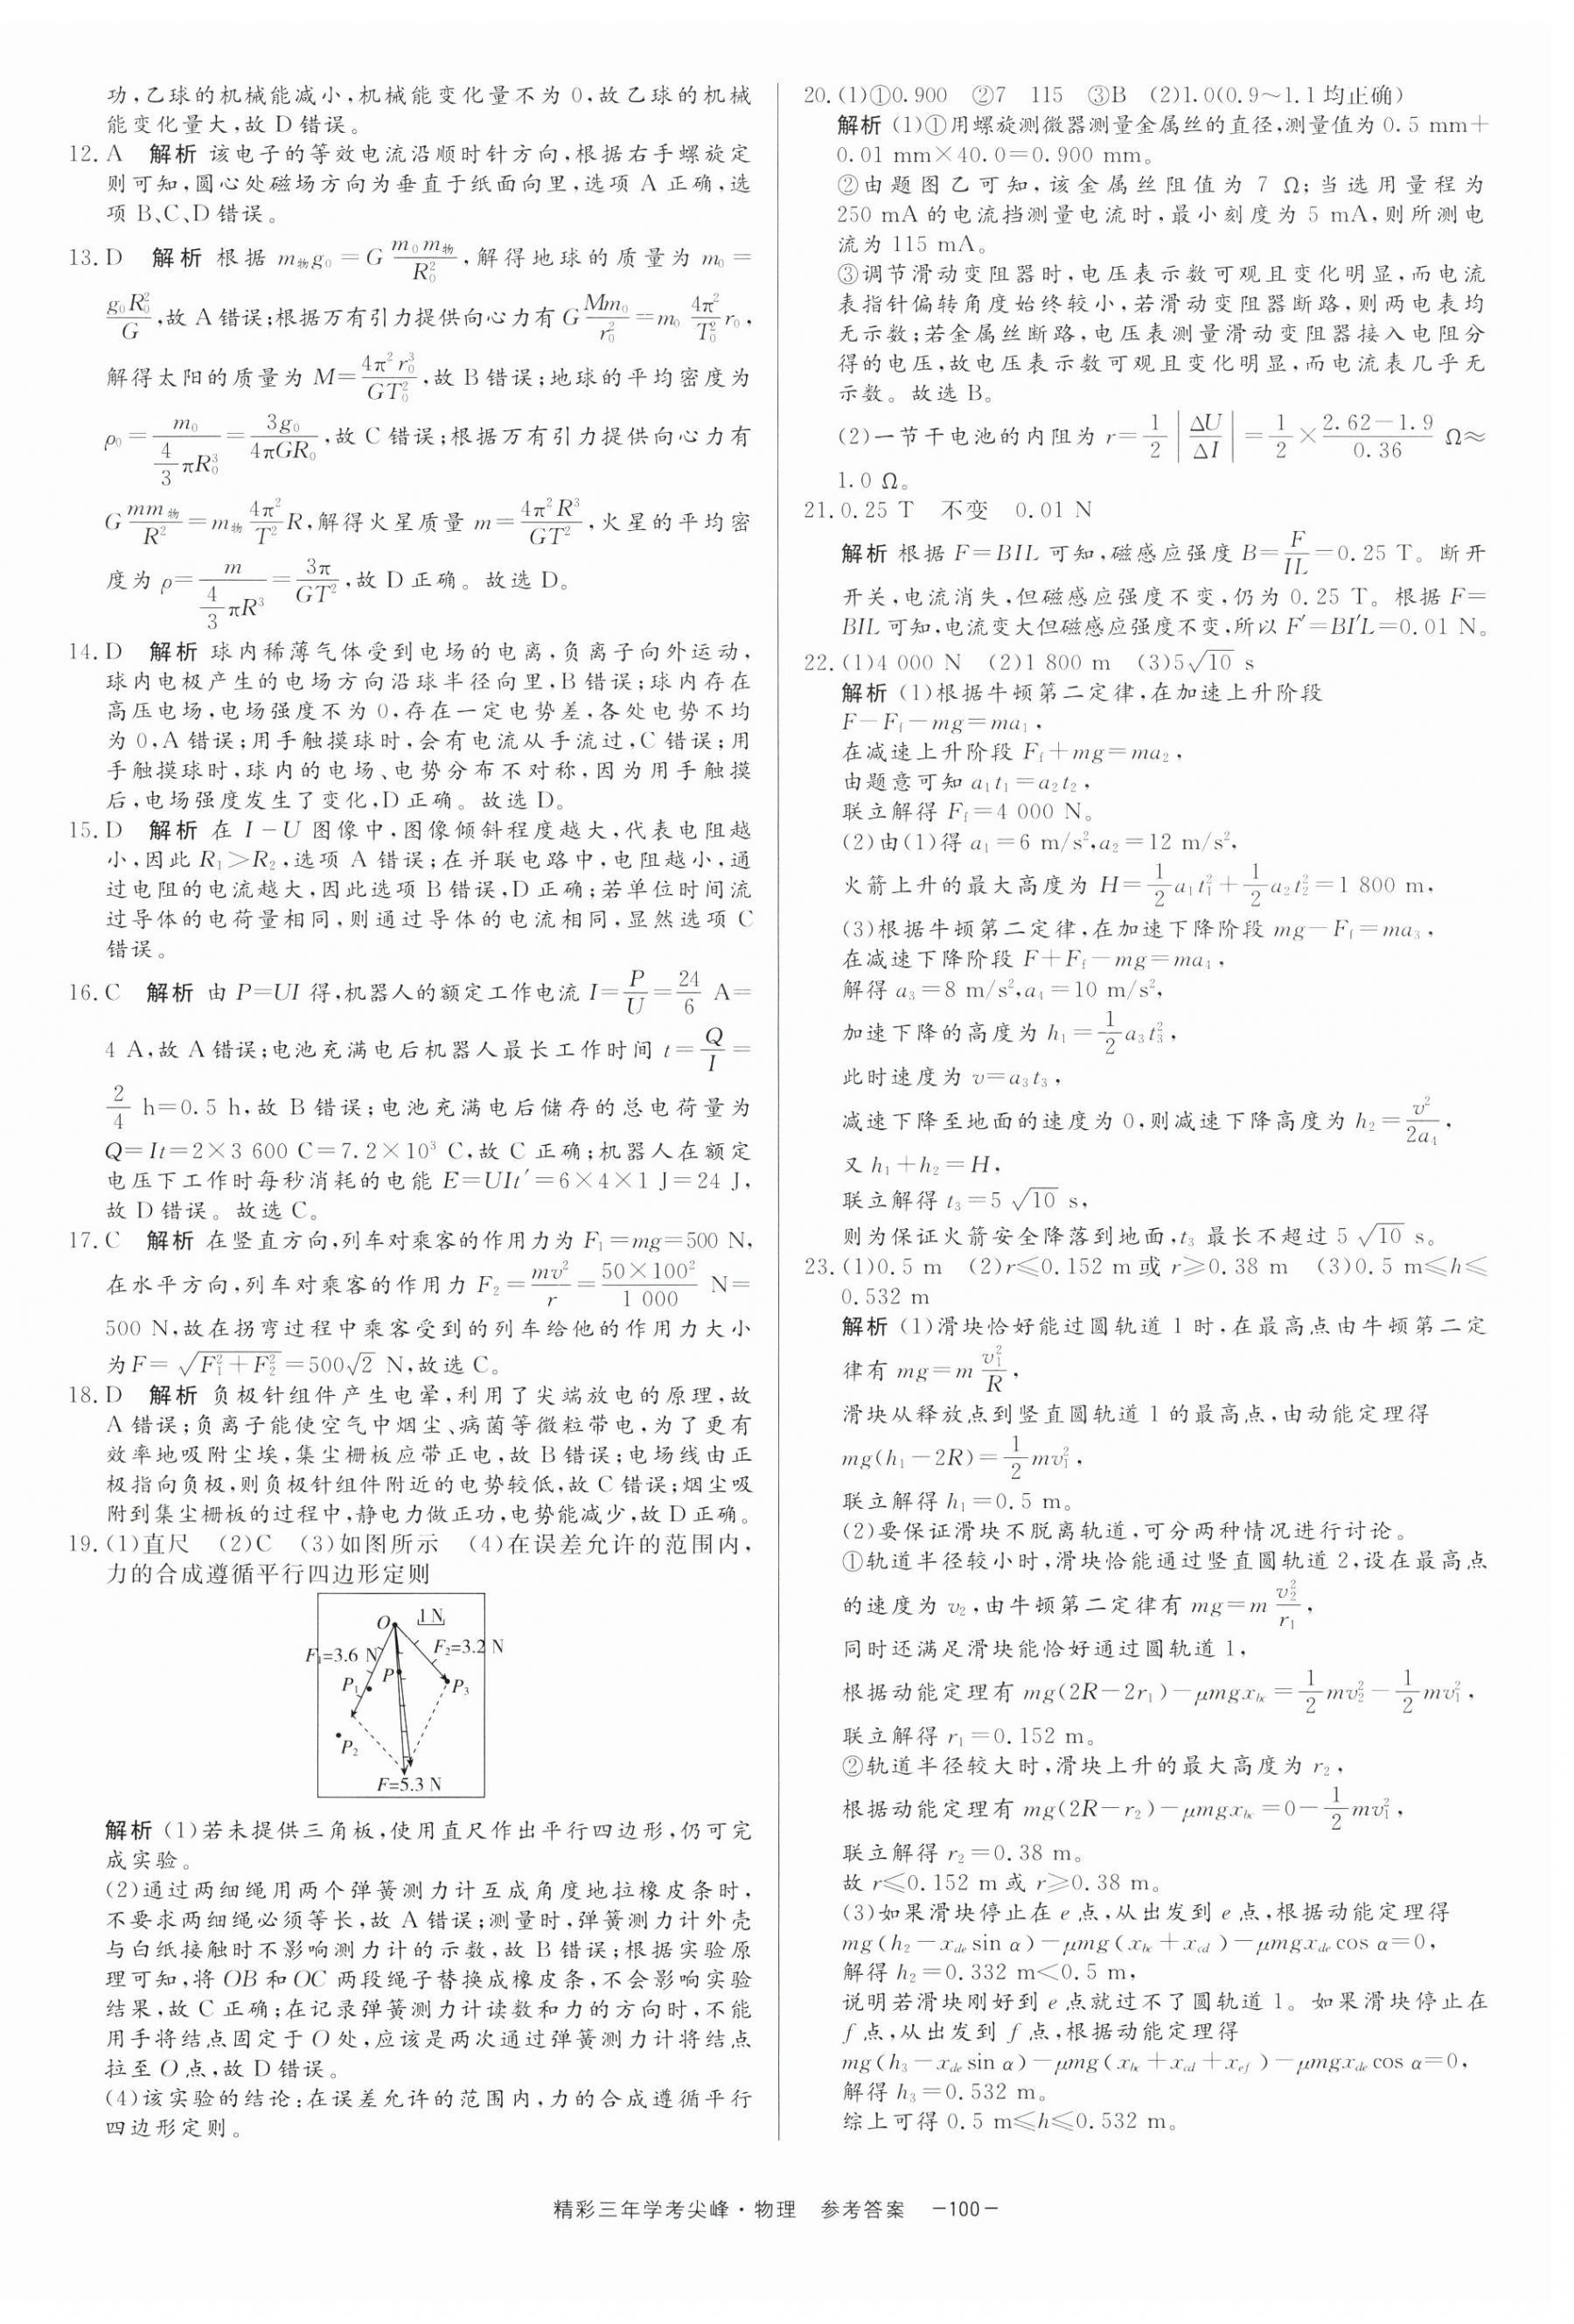 功,乙球的机械能减小,机械能变化量不为 0,故乙球的机械
能变化量大,故 D 错误。
12. A 解析 该电子的等效电流沿顺时针方向,根据右手螺旋定
则可知,圆心处磁场方向为垂直于纸面向里,选项 A 正确,选
项 B、C、D 错误。
13. D 解析 根据 m物g₀=G m₀m物/R₀²,解得地球的质量为 m₀=
g₀R₀²/G,故 A 错误;根据万有引力提供向心力有 G Mm₀/r₀²=m₀ 4π²/T₀² r₀,
解得太阳的质量为 M=4π²r₀³/GT₀²,故 B 错误;地球的平均密度为
ρ₀=m₀/(4/3 πR₀³)=3g₀/4πGR₀,故 C 错误;根据万有引力提供向心力有
G mm物/R²=m物 4π²/T² R,解得火星质量 m=4π²R³/GT²,火星的平均密
度为 ρ=m/(4/3 πR³)=3π/GT²,故 D 正确。故选 D。
14. D 解析 球内稀薄气体受到电场的电离,负离子向外运动,
球内电极产生的电场方向沿球半径向里,B 错误;球内存在
高压电场,电场强度不为 0,存在一定电势差,各处电势不均
为 0,A 错误;用手触摸球时,会有电流从手流过,C 错误;用
手触摸球时,球内的电场、电势分布不对称,因为用手触摸
后,电场强度发生了变化,D 正确。故选 D。
15. D 解析 在 I-U 图像中,图像倾斜程度越大,代表电阻越
小,因此 R₁>R₂,选项 A 错误;在并联电路中,电阻越小,通
过电阻的电流越大,因此选项 B 错误,D 正确;若单位时间流
过导体的电荷量相同,则通过导体的电流相同,显然选项 C
错误。
16. C 解析 由 P=UI 得,机器人的额定工作电流 I=P/U=24/6 A=
4 A,故 A 错误;电池充满电后机器人最长工作时间 t=Q/I=
2/4 h=0.5 h,故 B 错误;电池充满电后储存的总电荷量为
Q=It=2×3 600 C=7.2×10³ C,故 C 正确;机器人在额定
电压下工作时每秒消耗的电能 E=UIt′=6×4×1 J=24 J,
故 D 错误。故选 C。
17. C 解析 在竖直方向,列车对乘客的作用力为 F₁=mg=500 N,
在水平方向,列车对乘客的作用力 F₂=mv²/r=50×100²/1 000 N=
500 N,故在拐弯过程中乘客受到的列车给他的作用力大小
为F=√(F₁²+F₂²)=500√2 N,故选 C。
18. D 解析 负极针组件产生电晕,利用了尖端放电的原理,故
A 错误;负离子能使空气中烟尘、病菌等微粒带电,为了更有
效率地吸附尘埃,集尘栅板应带正电,故 B 错误;电场线由正
极指向负极,则负极针组件附近的电势较低,故 C 错误;烟尘吸
附到集尘栅板的过程中,静电力做正功,电势能减少,故 D 正确。
19. (1)直尺 (2)C (3)如图所示 (4)在误差允许的范围内,
力的合成遵循平行四边形定则
O 1 N
F₁=3.6 N F₂=3.2 N
P₁ P P₃
P₂
F=5.3 N
解析 (1)若未提供三角板,使用直尺作出平行四边形,仍可完
成实验。
(2)通过两细绳用两个弹簧测力计互成角度地拉橡皮条时,
不要求两细绳必须等长,故 A 错误;测量时,弹簧测力计外壳
与白纸接触时不影响测力计的示数,故 B 错误;根据实验原
理可知,将 OB 和 OC 两段绳子替换成橡皮条,不会影响实验
结果,故 C 正确;在记录弹簧测力计读数和力的方向时,不能
用手将结点固定于 O 处,应该是两次通过弹簧测力计将结点
拉至 O 点,故 D 错误。
(4)该实验的结论:在误差允许的范围内,力的合成遵循平行
四边形定则。
20. (1)①0.900 ②7 115 ③B (2)1.0(0.9~1.1均正确)
解析 (1)①用螺旋测微器测量金属丝的直径,测量值为 0.5 mm+
0.01 mm×40.0=0.900 mm。
②由题图乙可知,该金属丝阻值为 7 Ω;当选用量程为
250 mA 的电流挡测量电流时,最小刻度为 5 mA,则所测电
流为 115 mA。
③调节滑动变阻器时,电压表示数可观且变化明显,而电流
表指针偏转角度始终较小,若滑动变阻器断路,则两电表均
无示数;若金属丝断路,电压表测量滑动变阻器接入电阻分
得的电压,故电压表示数可观且变化明显,而电流表几乎无
示数。故选 B。
(2)一节干电池的内阻为 r=1/2|ΔU/ΔI|=1/2×(2.62-1.9)/0.36 Ω≈
1.0 Ω。
21. 0.25 T 不变 0.01 N
解析 根据 F=BIL 可知,磁感应强度 B=F/IL=0.25 T。断开
开关,电流消失,但磁感应强度不变,仍为 0.25 T。根据 F=
BIL 可知,电流变大但磁感应强度不变,所以 F′=BI′L=0.01 N。
22. (1)4 000 N (2)1 800 m (3)5√10 s
解析 (1)根据牛顿第二定律,在加速上升阶段
F-Ff-mg=ma₁,
在减速上升阶段 Ff+mg=ma₂,
由题意可知 a₁t₁=a₂t₂,
联立解得 Ff=4 000 N。
(2)由(1)得 a₁=6 m/s²,a₂=12 m/s²,
火箭上升的最大高度为 H=1/2 a₁t₁²+1/2 a₂t₂²=1 800 m,
(3)根据牛顿第二定律,在加速下降阶段 mg-Ff=ma₃,
在减速下降阶段 F+Ff-mg=ma₄,
解得 a₃=8 m/s²,a₄=10 m/s²,
加速下降的高度为 h₁=1/2 a₃t₃²,
此时速度为 v=a₃t₃,
减速下降至地面的速度为 0,则减速下降高度为 h₂=v²/2a₄,
又 h₁+h₂=H,
联立解得 t₃=5√10 s,
则为保证火箭安全降落到地面,t₃ 最长不超过 5√10 s。
23. (1)0.5 m (2)r≤0.152 m或 r≥0.38 m (3)0.5 m≤h≤
0.532 m
解析 (1)滑块恰好能过圆轨道 1 时,在最高点由牛顿第二定
律有 mg=m v₁²/R,
滑块从释放点到竖直圆轨道 1 的最高点,由动能定理得
mg(h₁-2R)=1/2 mv₁²,
联立解得 h₁=0.5 m。
(2)要保证滑块不脱离轨道,可分两种情况进行讨论。
①轨道半径较小时,滑块恰能通过竖直圆轨道 2,设在最高点
的速度为 v₂,由牛顿第二定律有 mg=m v₂²/r₁,
同时还满足滑块能恰好通过圆轨道 1,
根据动能定理有 mg(2R-2r₁)-μmgxbc=1/2 mv₂²-1/2 mv₁²,
联立解得 r₁=0.152 m。
②轨道半径较大时,滑块上升的最大高度为 r₂,
根据动能定理有 mg(2R-r₂)-μmgxbc=0-1/2 mv₁²,
联立解得 r₂=0.38 m。
故 r≤0.152 m或 r≥0.38 m。
(3)如果滑块停止在 e 点,从出发到 e 点,根据动能定理得
mg(h₂-xde sin α)-μmg(xbc+xcd)-μmgxde cos α=0,
解得 h₂=0.332 m<0.5 m,
说明若滑块刚好到 e 点就过不了圆轨道 1。如果滑块停止在
f 点,从出发到 f 点,根据动能定理得
mg(h₃-xde sin α)-μmg(xbc+xcd+xef)-μmgxde cos α=0,
解得 h₃=0.532 m。
综上可得 0.5 m≤h≤0.532 m。
精彩三年学考尖峰·物理 参考答案 -100-